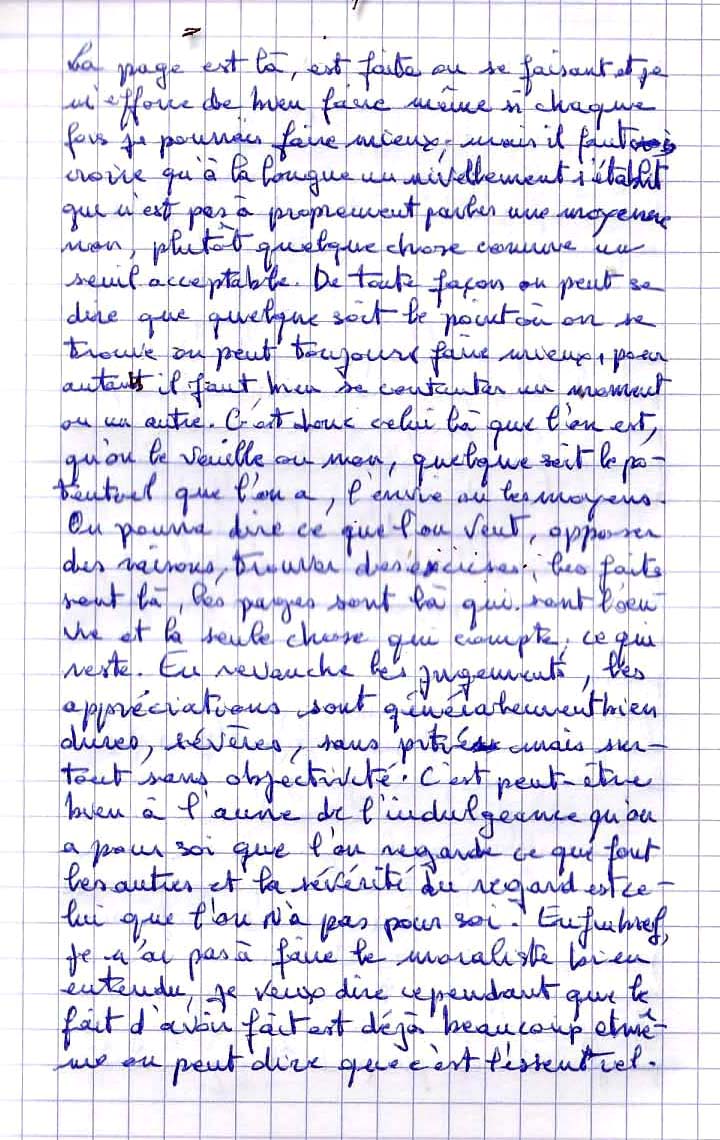 La page est là, est faite ou se faisant et je
m'efforce de bien faire même si chaque
fois je pourrais faire mieux, mais il faut
croire qu'à la longue un nivellement s'établit
qui n'est pas à proprement parler une moyenne
non, plutôt quelque chose comme un
seuil acceptable. De toute façon on peut se
dire que quelque soit le point où on se
trouve on peut toujours faire mieux, pour
autant il faut bien se contenter un moment
ou un autre. C'est donc celui là que l'on est,
qu'on le veuille ou non, quelque soit le po-
tentiel que l'on a, l'envie ou les moyens.
On pourra dire ce que l'on veut, opposer
des raisons, trouver des excuses, les faits
sont là, les pages sont là qui sont l'oeu
vre et la seule chose qui compte, ce qui
reste. En revanche les jugements, les
appréciations sont généralement bien
dures, sévères, sans pitié mais sur-
tout sans objectivité. C'est peut-être
bien à l'aune de l'indulgeance qu'on
a pour soi que l'on regarde ce que font
les autres et la sévérité du regard est ce-
lui que l'on n'a pas pour soi. Enfin bref,
je n'ai pas à faire le moraliste bien
entendu, je veux dire cependant que le
fait d'avoir fait est déjà beaucoup et mê-
me on peut dire que c'est l'éssentiel.